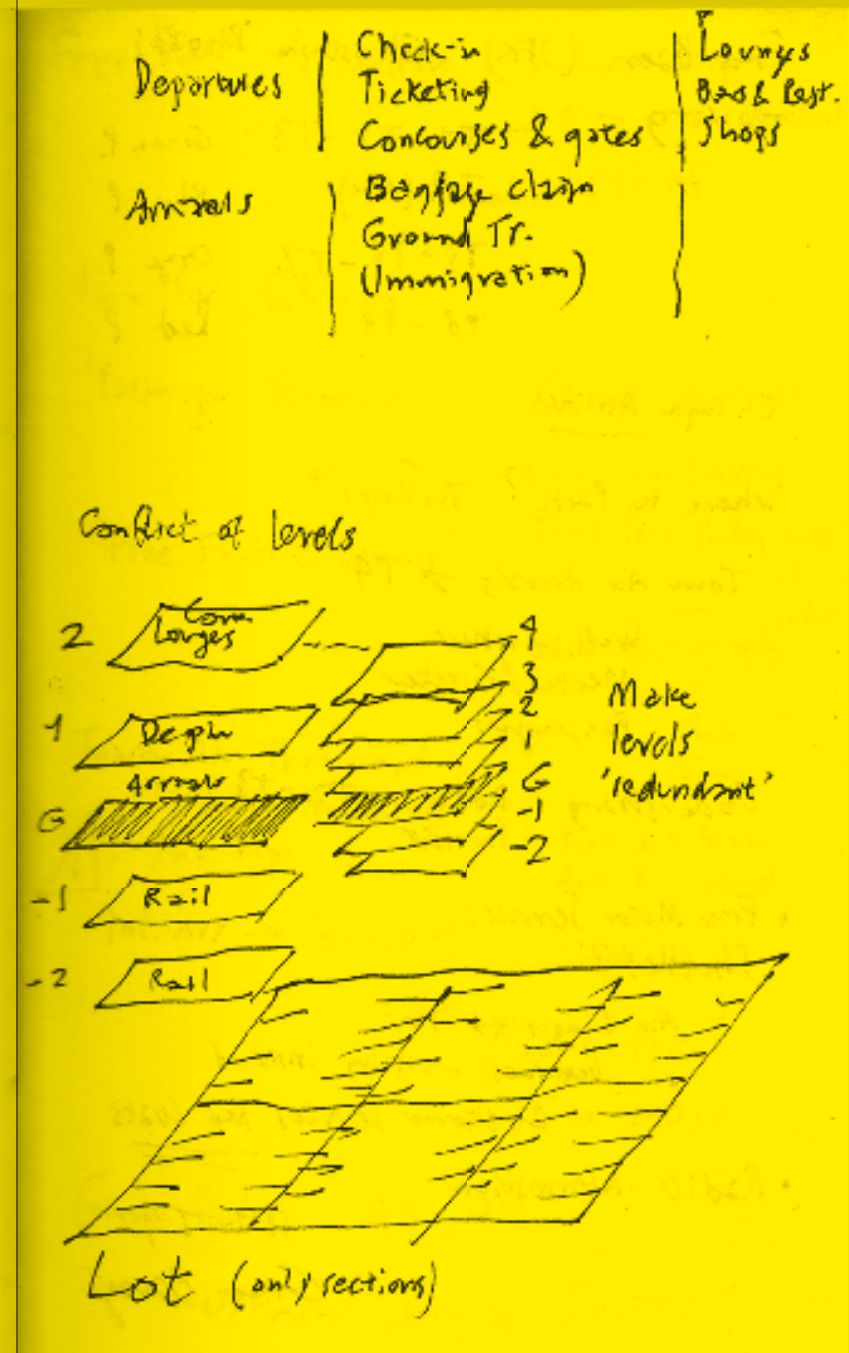 Departures
Check-in
Ticketing
Concourses & gates
Lounges
Bars & Rest.
Shops
Arrivals
Baggage claim
Ground Tr.
(Immigration)
Conflict of levels
2
Lounges
1
Arrivals
G
-1
Rail
-2
Rail
4
3
2
1
G
-1
-2
Make
levels
'redundant'
Lot (only sections)